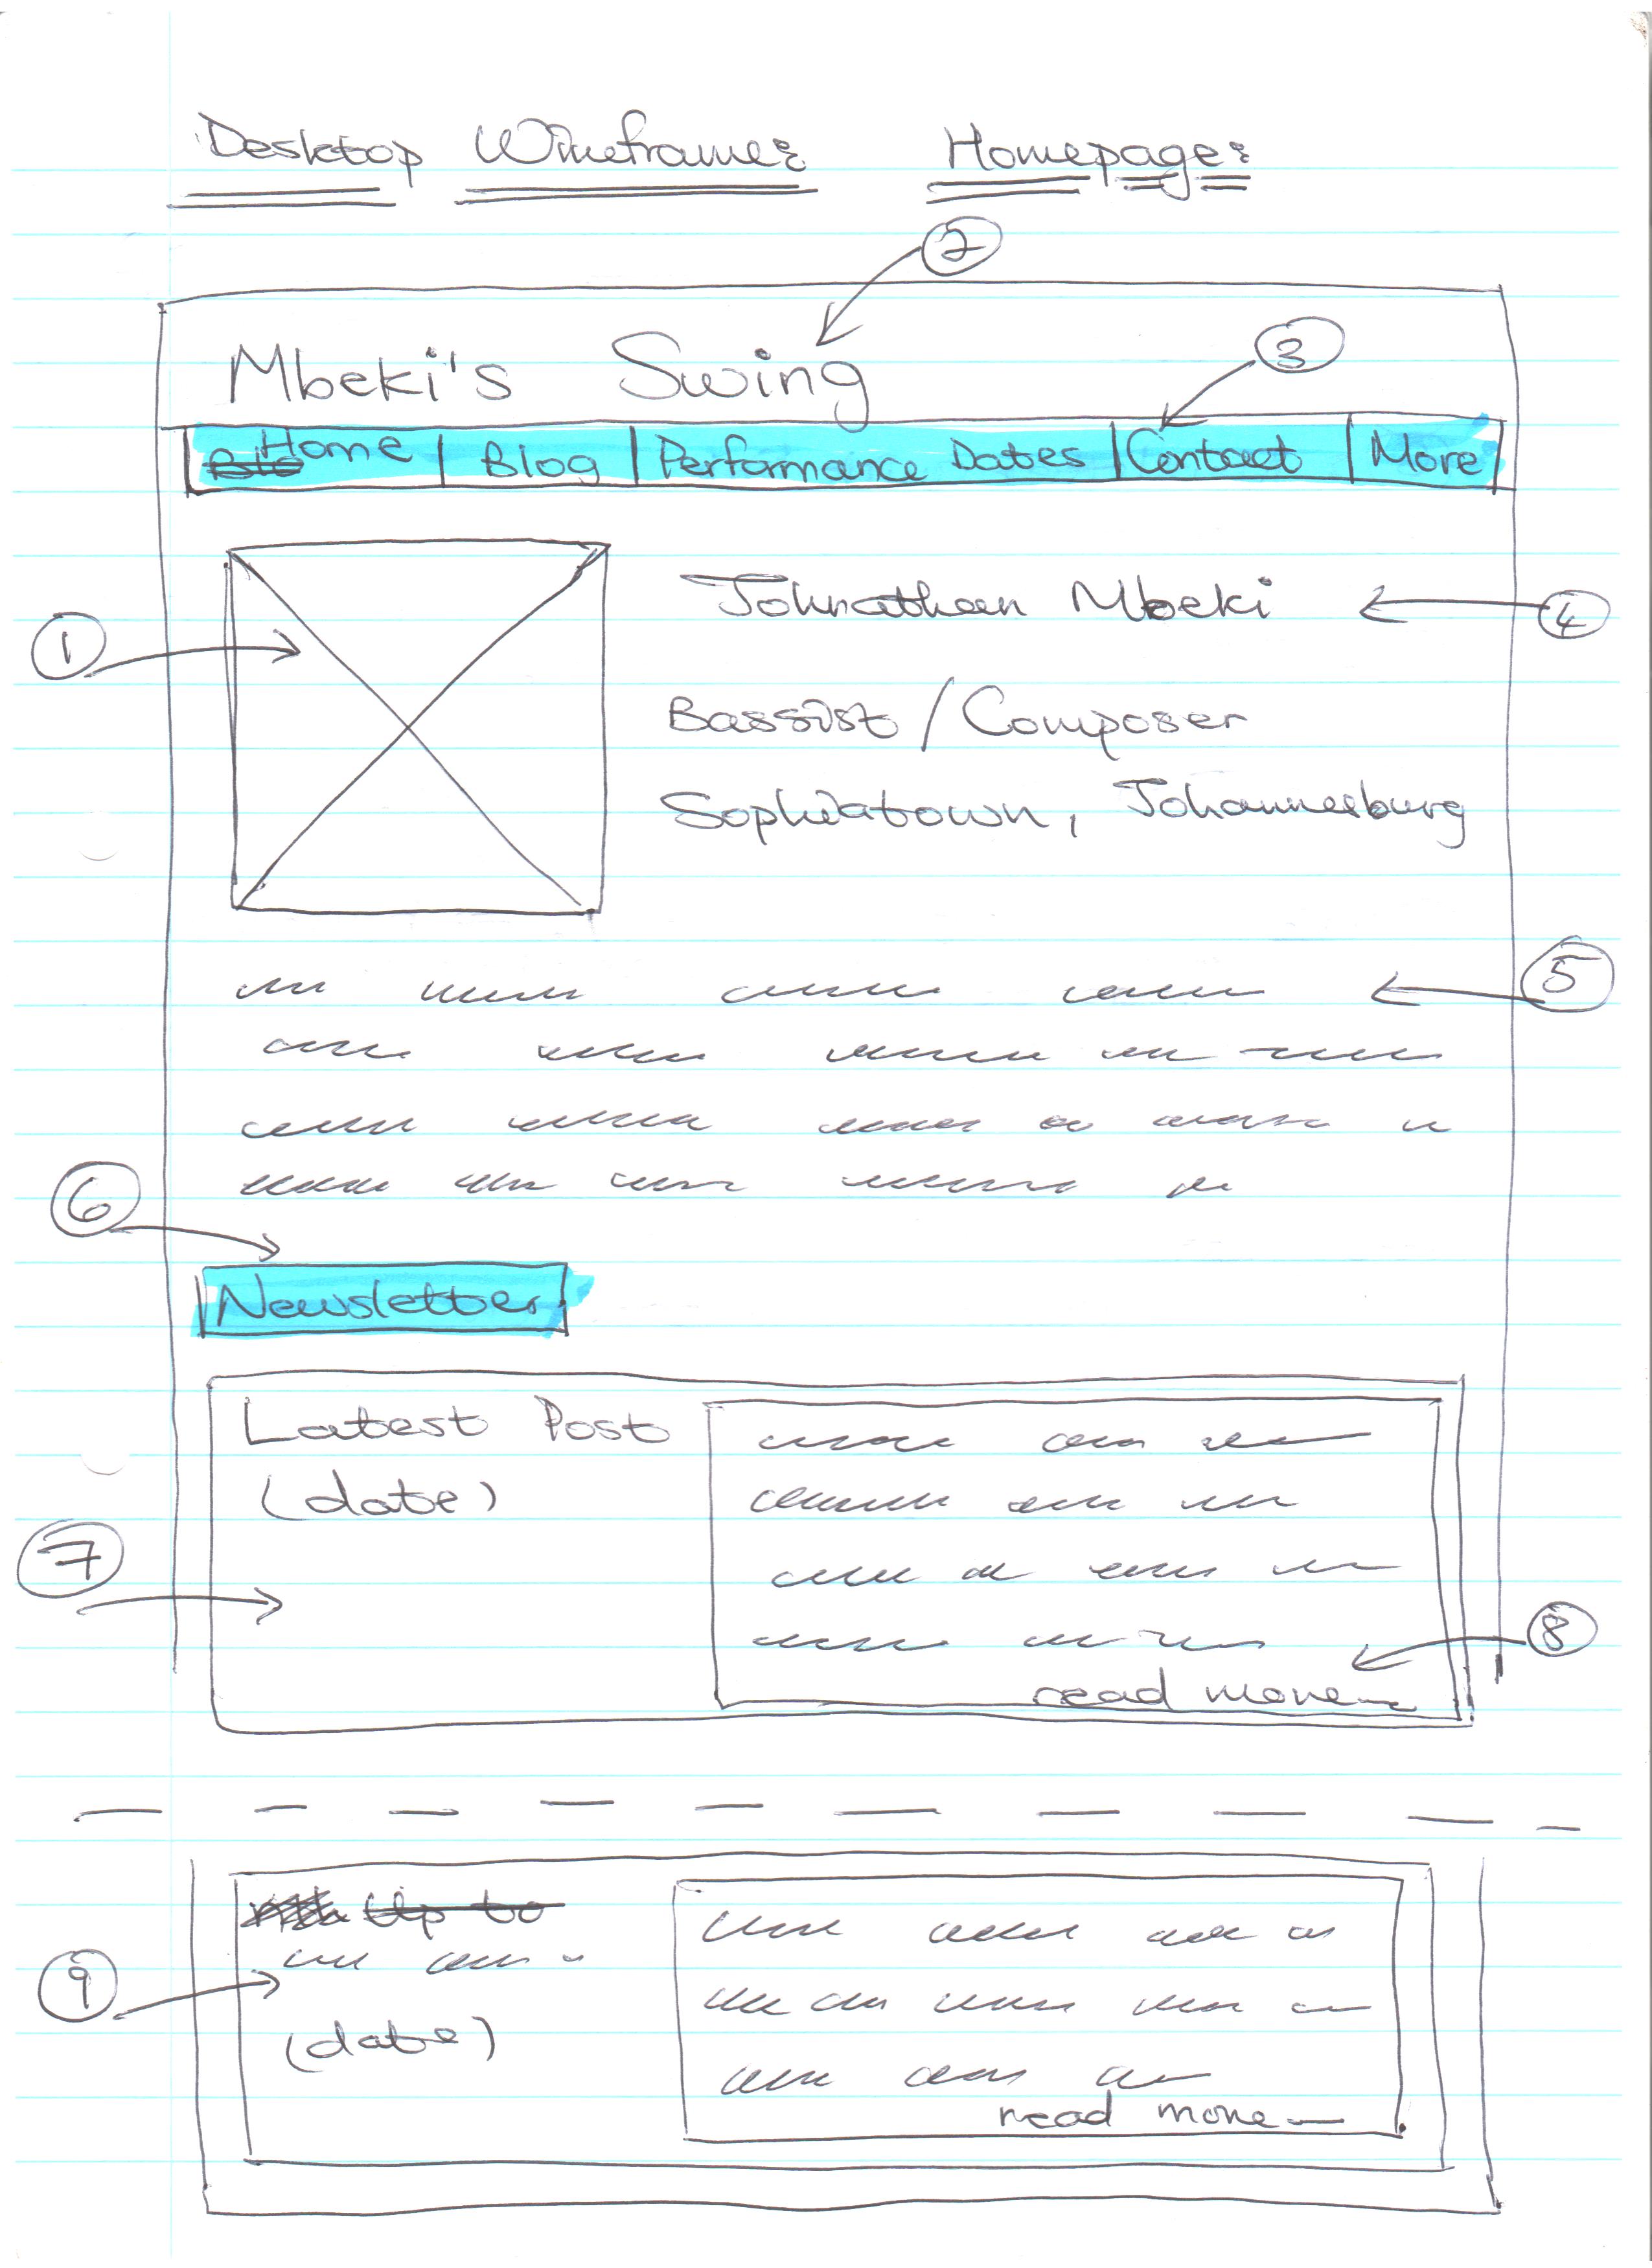 Desktop Wireframe: Homepage:
2
Mbeki's Swing
3
Home | Blog | Performance Dates | Contact | More
1
Johnathan Mbeki
4
Bassist / Composer
Sophiatown, Johannesburg
5
6
Newsletter
Latest Post
(date)
7
8
read more
Up to
9
(date)
read more